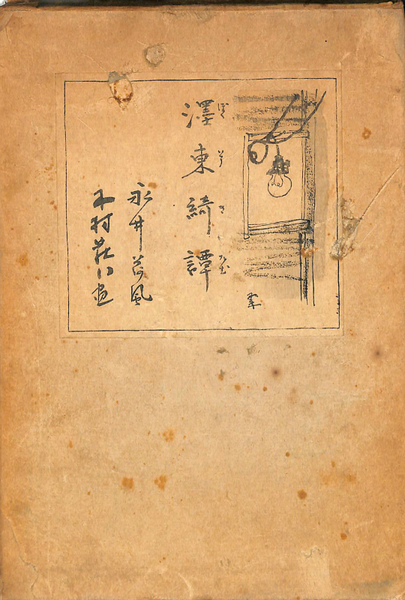 濹東綺譚
永井荷風
木村荘八画